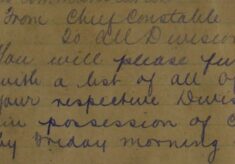 From Chief Constable
To all Division
You will please fur
with a list of all of
your respective Divis
in possession of C
by Friday morning